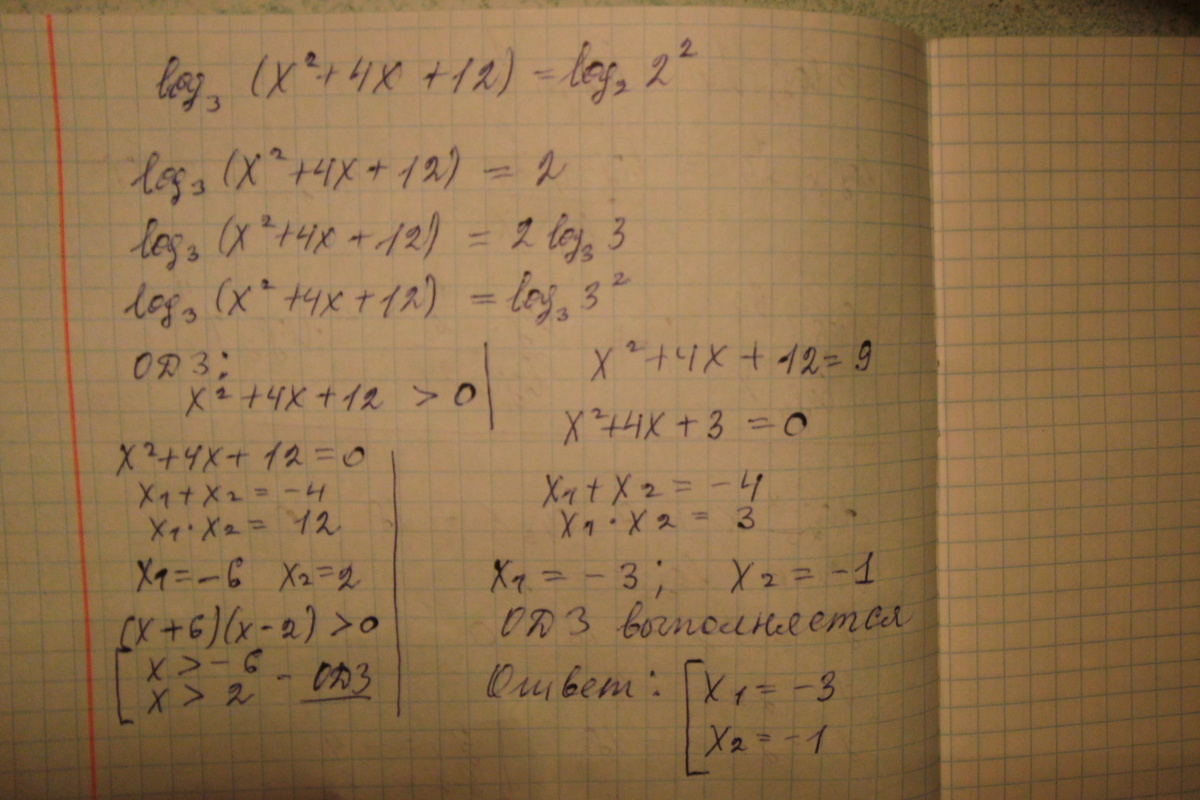 log₃ (x²+4x+12) = log₂ 2²
log₃ (x²+4x+12) = 2
log₃ (x²+4x+12) = 2 log₃ 3
log₃ (x²+4x+12) = log₃ 3²
ОДЗ:
x²+4x+12 > 0
x²+4x+12=0
x₁+x₂=-4
x₁·x₂= 12
x₁=-6 x₂=2
(x+6)(x-2)>0
x>-6
x>2 - ОДЗ
x²+4x+12=9
x²+4x+3=0
x₁+x₂=-4
x₁·x₂=3
x₁=-3; x₂=-1
ОДЗ выполняется
Ответ: [x₁=-3
x₂=-1